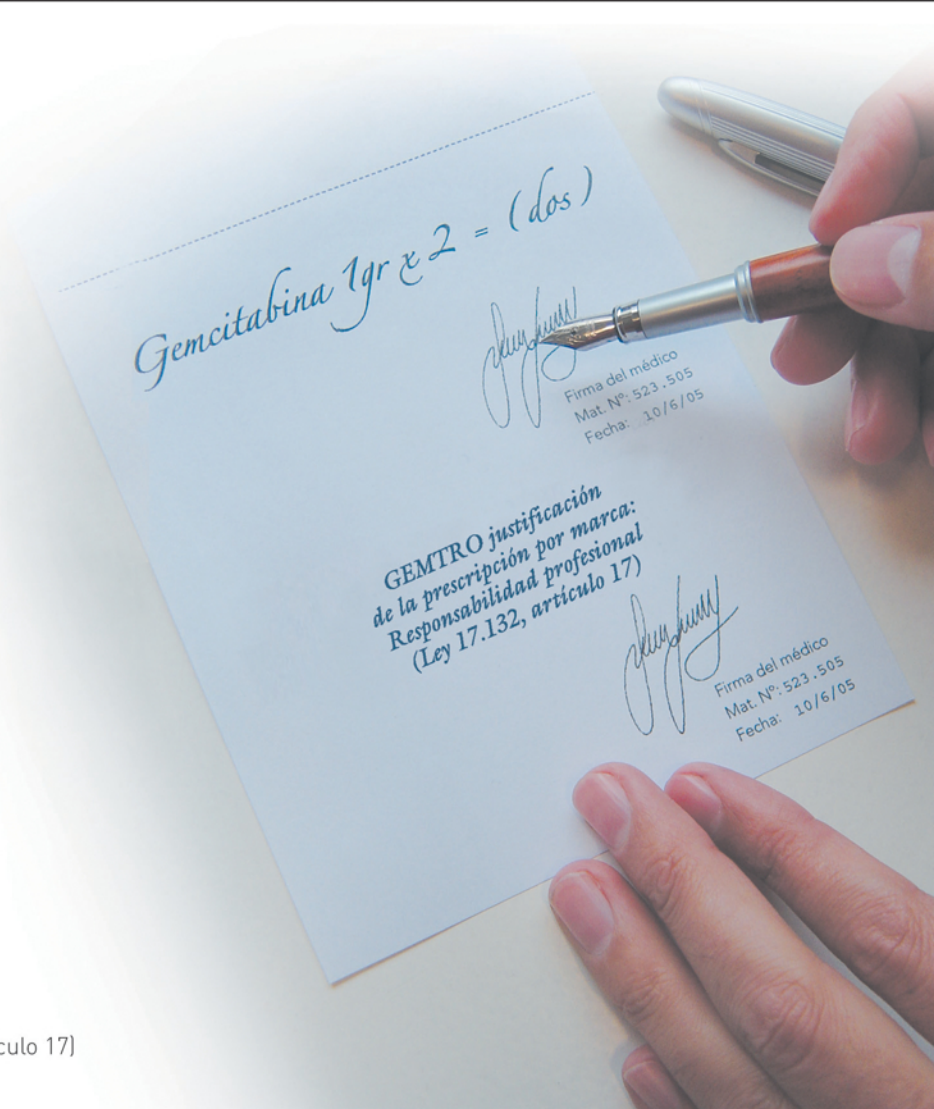 Gemcitabina 1gr x 2 = (dos)
Firma del médico
Mat. Nº: 523.505
Fecha: 10/6/05
GEMTRO justificación
de la prescripción por marca:
Responsabilidad profesional
(Ley 17.132, artículo 17)
Firma del médico
Mat. Nº: 523.505
Fecha: 10/6/05
culo 17)